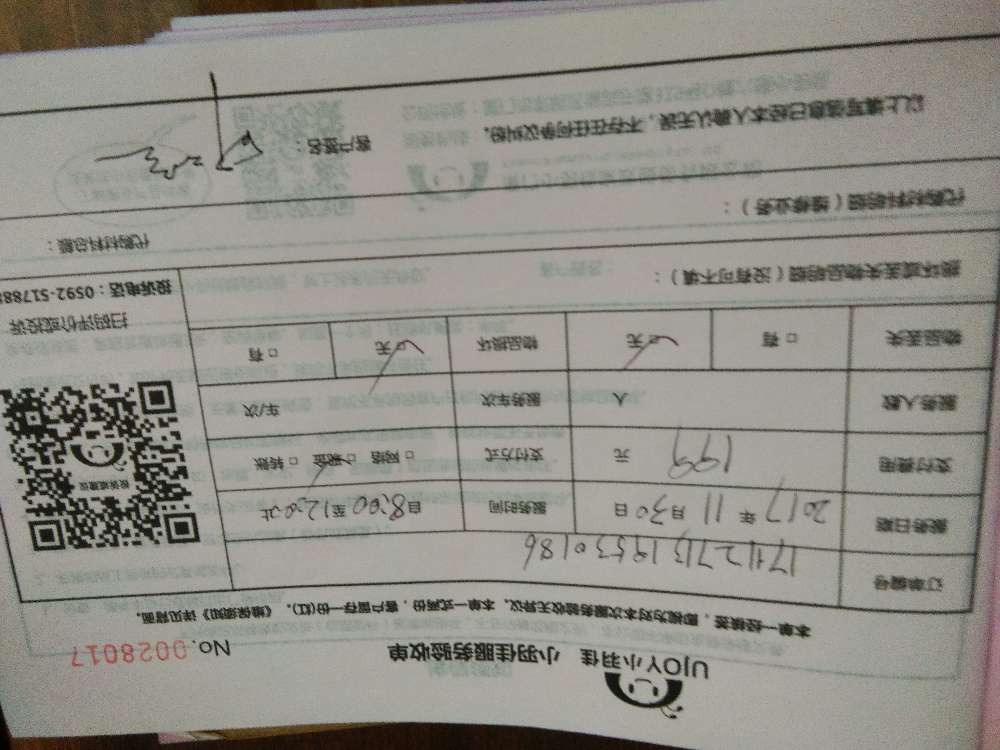 UJOY小羽佳 小羽佳服务验收单 No. 0028017
本单一经核签，即视为对本次服务验收无异议。本单一式两份，客户留存一份(红)。《维保须知》详见背面。
订单编号 171127131953 0186
服务日期 2017 年 11 月 30 日 服务时间 自8:00至12:00止
支付费用 199 元 支付方式 □现金 □网络 □转账
服务人数 人 服务车次 车/次
物品丢失 □有 □无 物品损坏 □无 □有
投诉建议
扫码评价或投诉
损坏或丢失物品明细（没有可不填）： 投诉电话：0592-51788
代购材料明细（维修业务）： 代购材料总额：
以上填写信息已经本人确认无误，不存在任何争议纠纷。 客户签名：